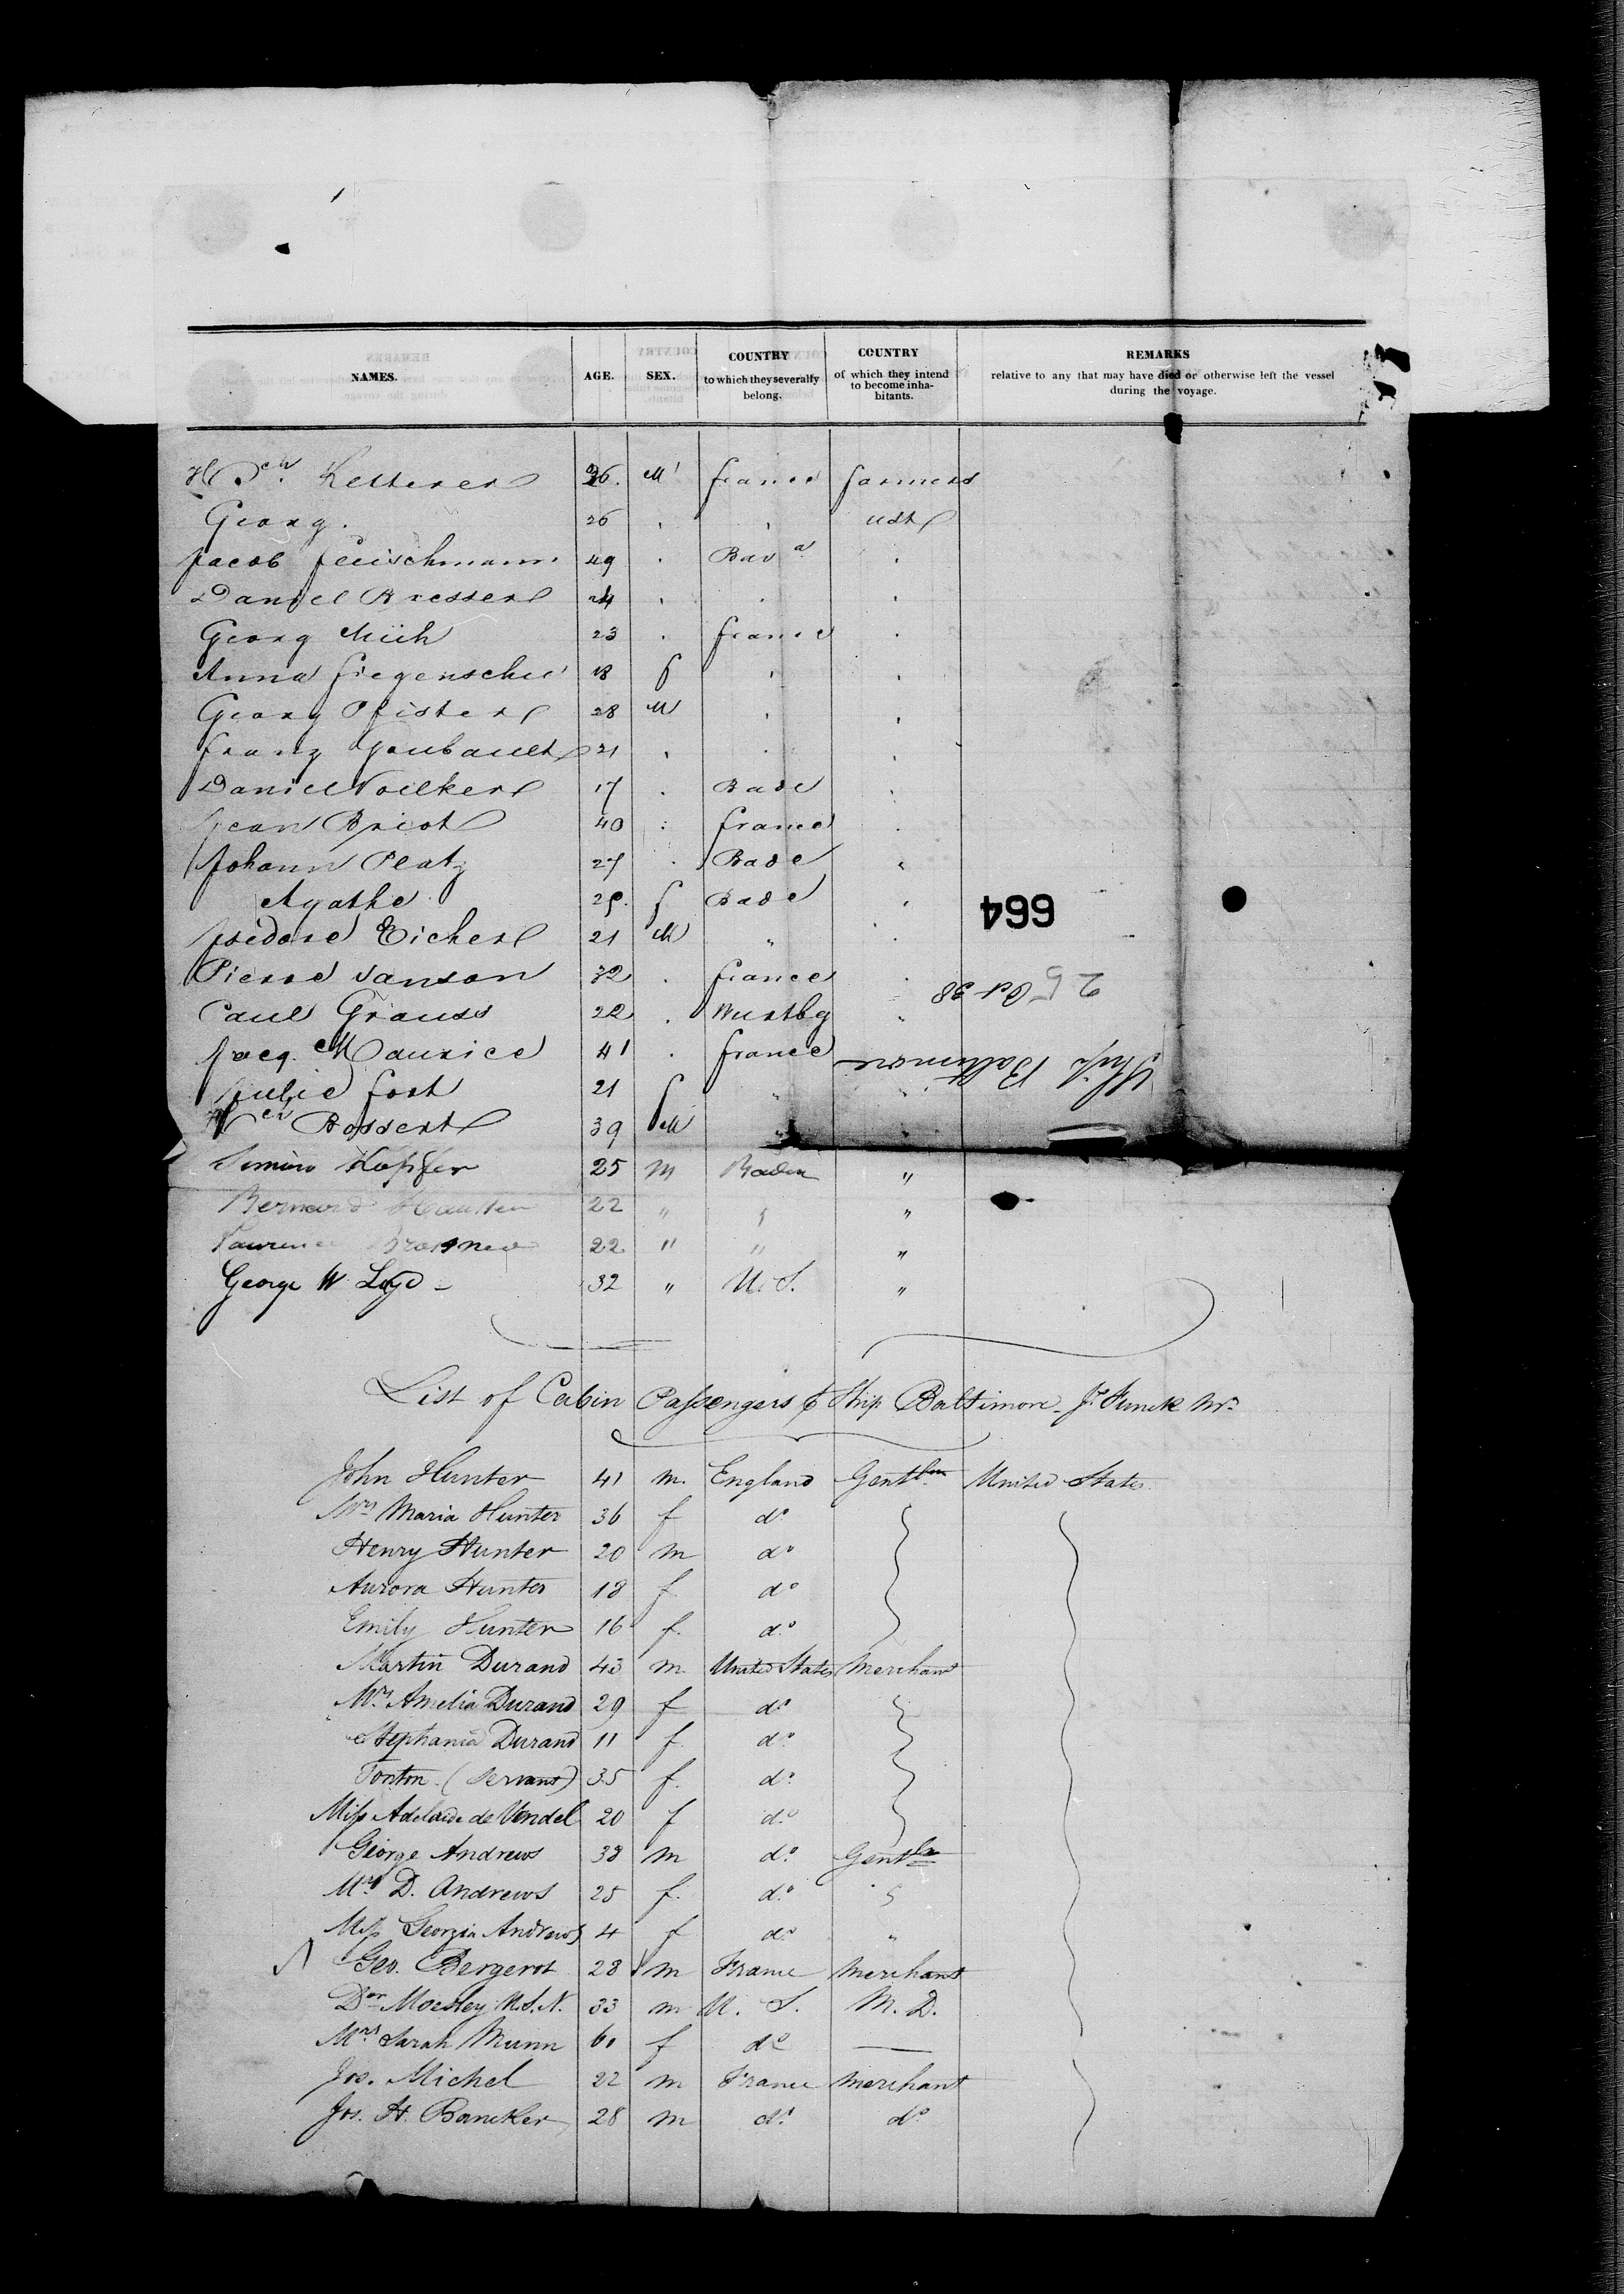 NAMES. AGE. SEX. COUNTRY to which they severally belong. COUNTRY of which they intend to become inhabitants. REMARKS relative to any that may have died or otherwise left the vessel during the voyage.
Ketterer 26. M france farmers
Georg. 26 " " udt
Jacob fleischmann 49 " Bava "
Daniel Bresser 24 " " "
Georg Müh 23 " france "
Anna 18 f " "
Georg Pfister 28 M " "
franz Goubault 21 " " "
Daniel Voelker 17 " Bade "
Jean Briot 40 " france "
Johann Platz 27 " Bade "
Agathe 25. f Bade "
Isidore Eicher 21 M " "
Pierre Sanson 32 " france "
Paul Grauss 22 " Wurtbg "
Jacq. Maurice 41 " france
Julie fort 21 f " "
Bossert 39 M " "
664
25 Oct 38
Ship Baltimore
Hopfer 25 m Baden "
Bernard 22 " " "
22 " " "
George W Loyd 32 " U.S. "
List of Cabin Passengers pr Ship Baltimore - Js Funck Mr
John Hunter 41 m. England Gentlm United States
Mrs Maria Hunter 36 f do
Henry Hunter 20 m do
Aurora Hunter 18 f do
Emily Hunter 16 f. do
Martin Durand 43 m. United States Merchant
Mrs Amelia Durand 29 f do
Stephania Durand 11 f. do
Tonton (Servant) 35 f. do
Miss Adelaide de Vendel 20 f do
George Andrews 38 m do Gentln
Mrs D. Andrews 25 f. do "
Miss Georgia Andrews 4 f do "
Geo. Bergerot 28 m France Merchant
Dor Moesley U.S.N. 33 m U. S. M. D.
Mrs Sarah Munn 60 f do —
Jos. Michel 22 m France Merchant
Jos. H. Bancker 28 m do do